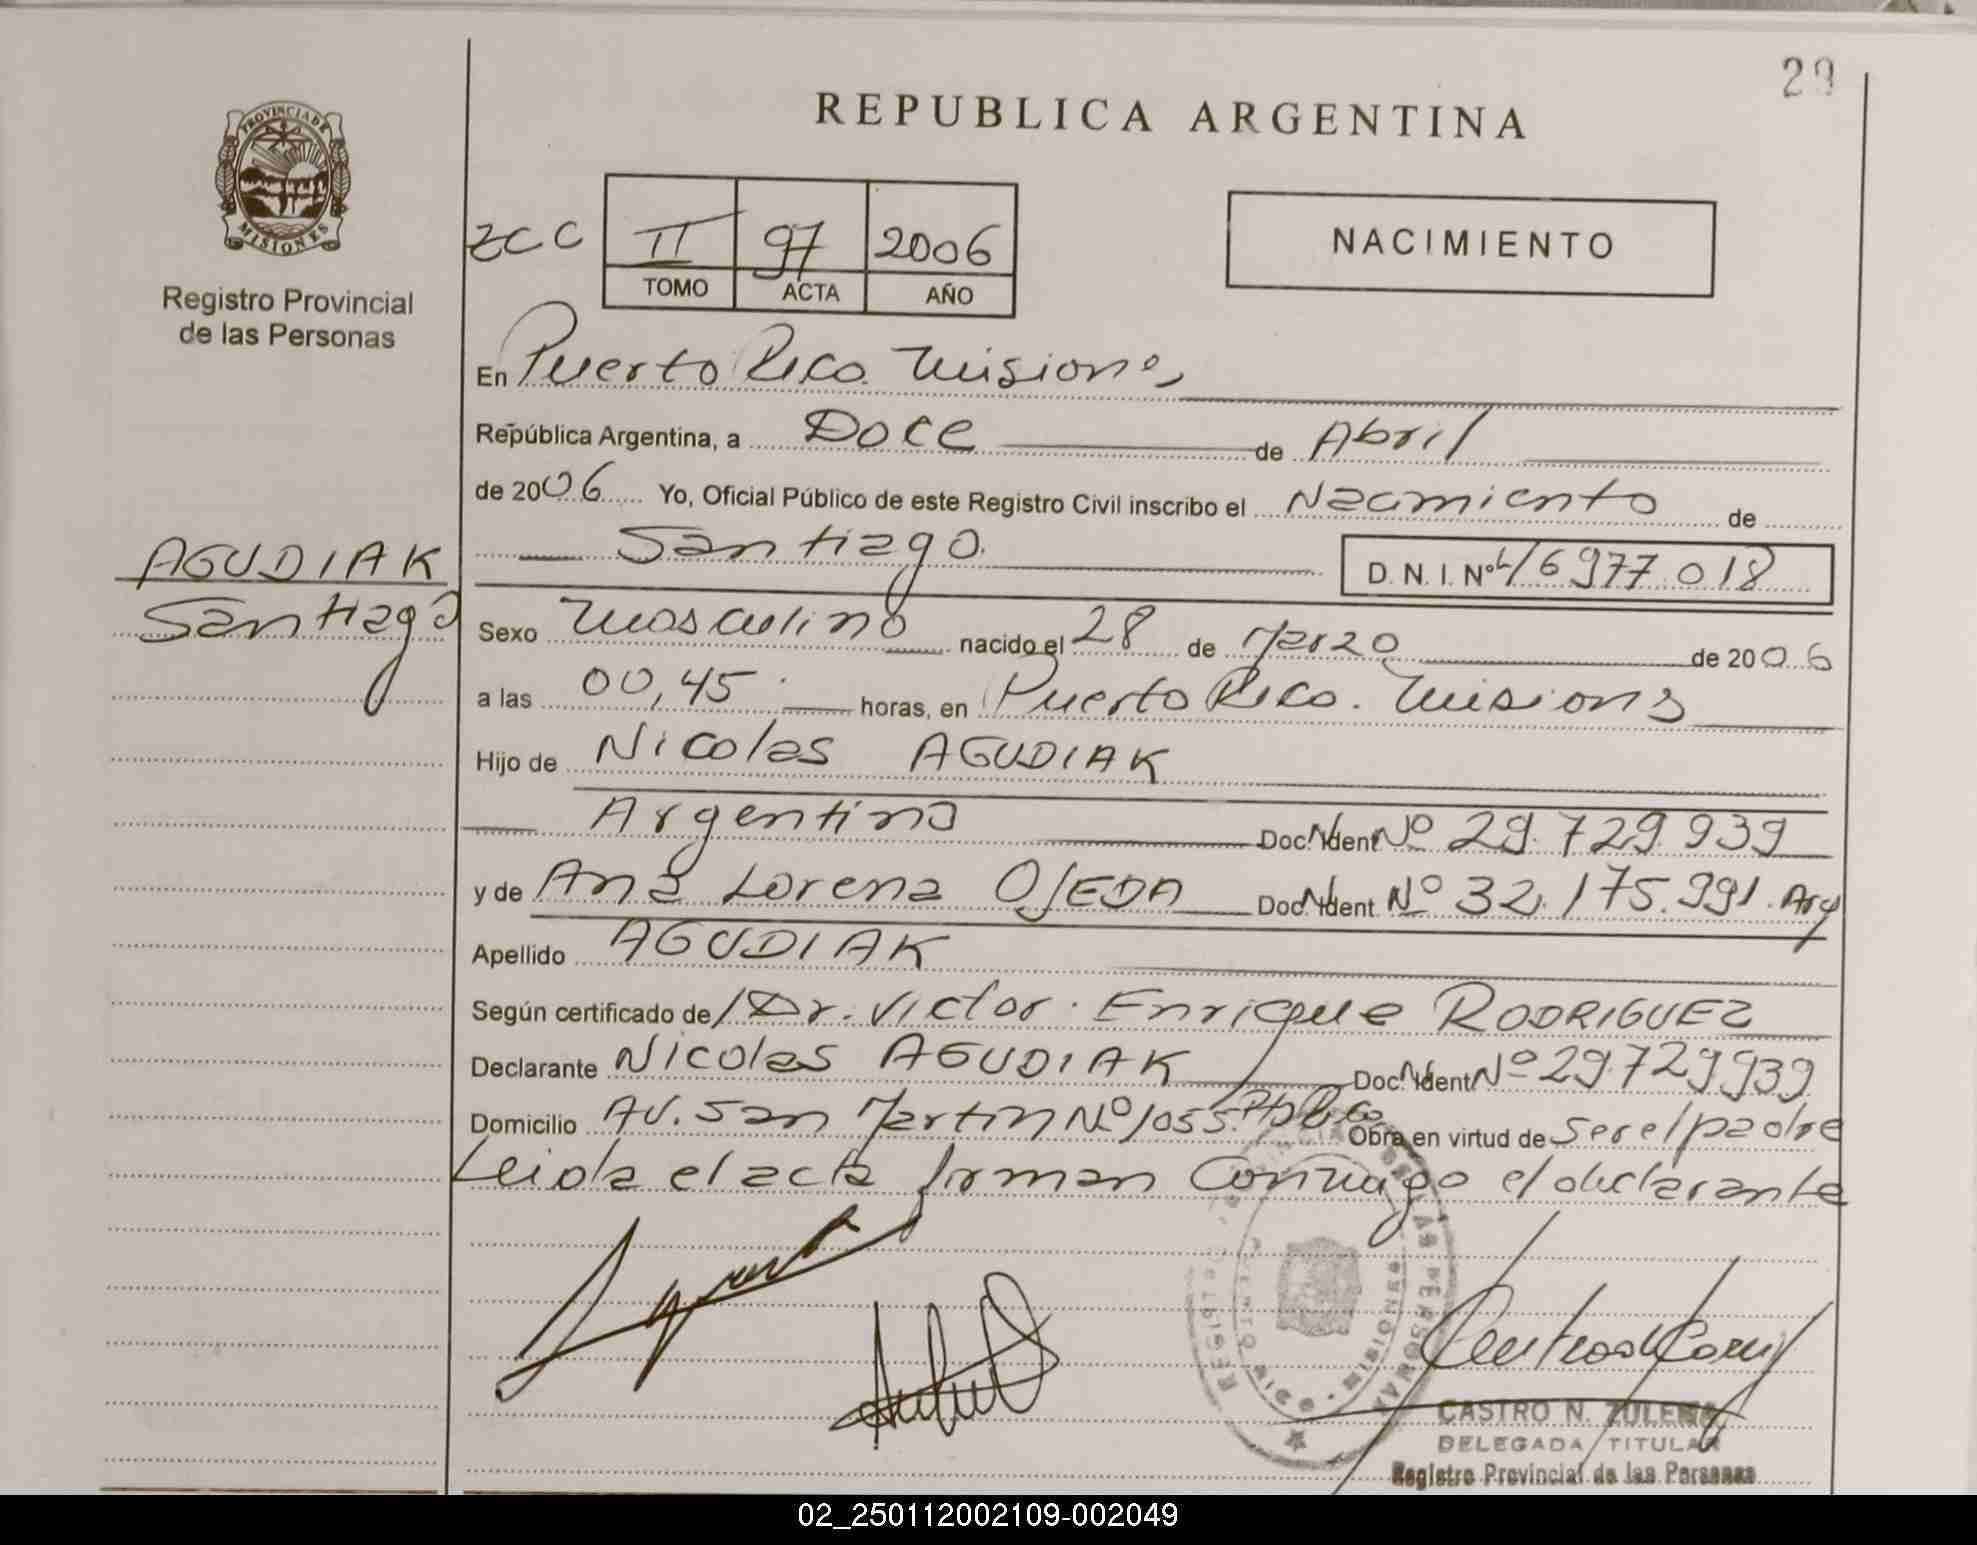 29
REPUBLICA ARGENTINA
PROVINCIA DE
MISIONES
Registro Provincial
de las Personas
ZCC II 97 2006
TOMO ACTA AÑO
NACIMIENTO
En Puerto Rico. Misiones
República Argentina, a Doce de Abril
de 2006 Yo, Oficial Público de este Registro Civil inscribo el Nacimiento de
Santiago D. N. I. Nº 46977.018
AGUDIAK
Santiago
Sexo Masculino nacido el 28 de Marzo de 2006
a las 00,45 horas, en Puerto Rico. Misiones
Hijo de Nicolas AGUDIAK
Argentino Doc. Ident Nº 29.729.939
y de Ana Lorena OJEDA Doc. Ident Nº 32.175.991. Arg
Apellido AGUDIAK
Según certificado de Dr. Victor Enrique RODRIGUEZ
Declarante Nicolas AGUDIAK Doc. Ident Nº 29.729939
Domicilio Av. San Martin Nº 1055. Pto Rico Obra en virtud de ser el padre
Leida el acta firman Conmigo el declarante
CASTRO N. ZULEMA
DELEGADA TITULAR
Registro Provincial de las Personas
02_250112002109-002049